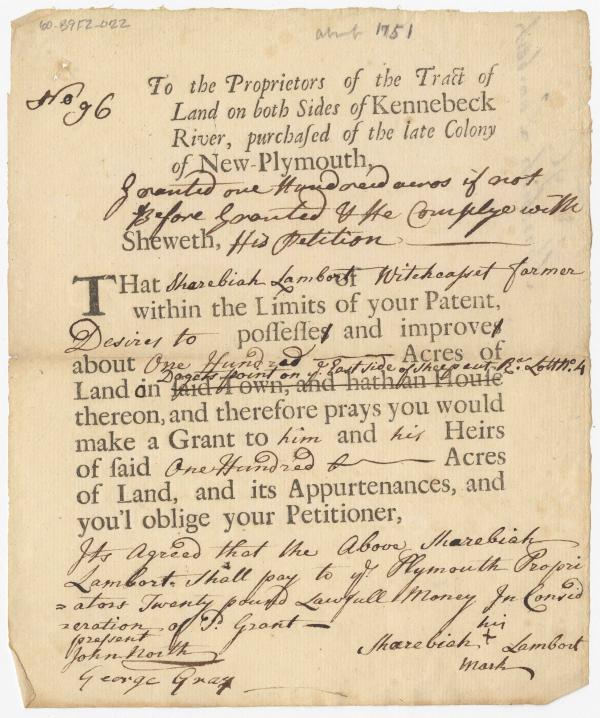 60-B9F2-022
about 1751
No 96
To the Proprietors of the Tract of
Land on both Sides of Kennebeck
River, purchaſed of the late Colony
of New-Plymouth,
Granted one Hundread acros if not
Before Granted & He Complye with
Sheweth, His Petition
THat Sharebiah Lambort of Witchcasset farmer
within the Limits of your Patent,
Desires to poſſeſſes and improves
about One Hundred Acres of
Dogets Point on ye East side of Sheepscut Rr. Lott No. 4
Land in ſaid Town, and hath an Houſe
thereon, and therefore prays you would
make a Grant to him and his Heirs
of ſaid One Hundred Acres
of Land, and its Appurtenances, and
you'l oblige your Petitioner,
Its Agreed that the Above Sharebiah
Lambort Shall pay to ye Plymouth Propri
=ators Twenty pound Lawfull Money In Consid
=eration of Sd. Grant
present
his
John North
Sharebiah + Lambort
George Gray
Mark